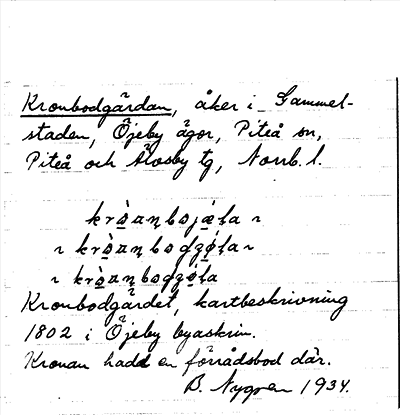 Kronbodgärdan, åker i Gammel-
staden, Öjeby ägor, Piteå sn,
Piteå och Älvsby tg, Norrb. l.
Kronbodgärdet, kartbeskrivning
1802 i Öjeby byaskrin.
Kronan hadd en förrådsbod där.
B. Nygren 1934.